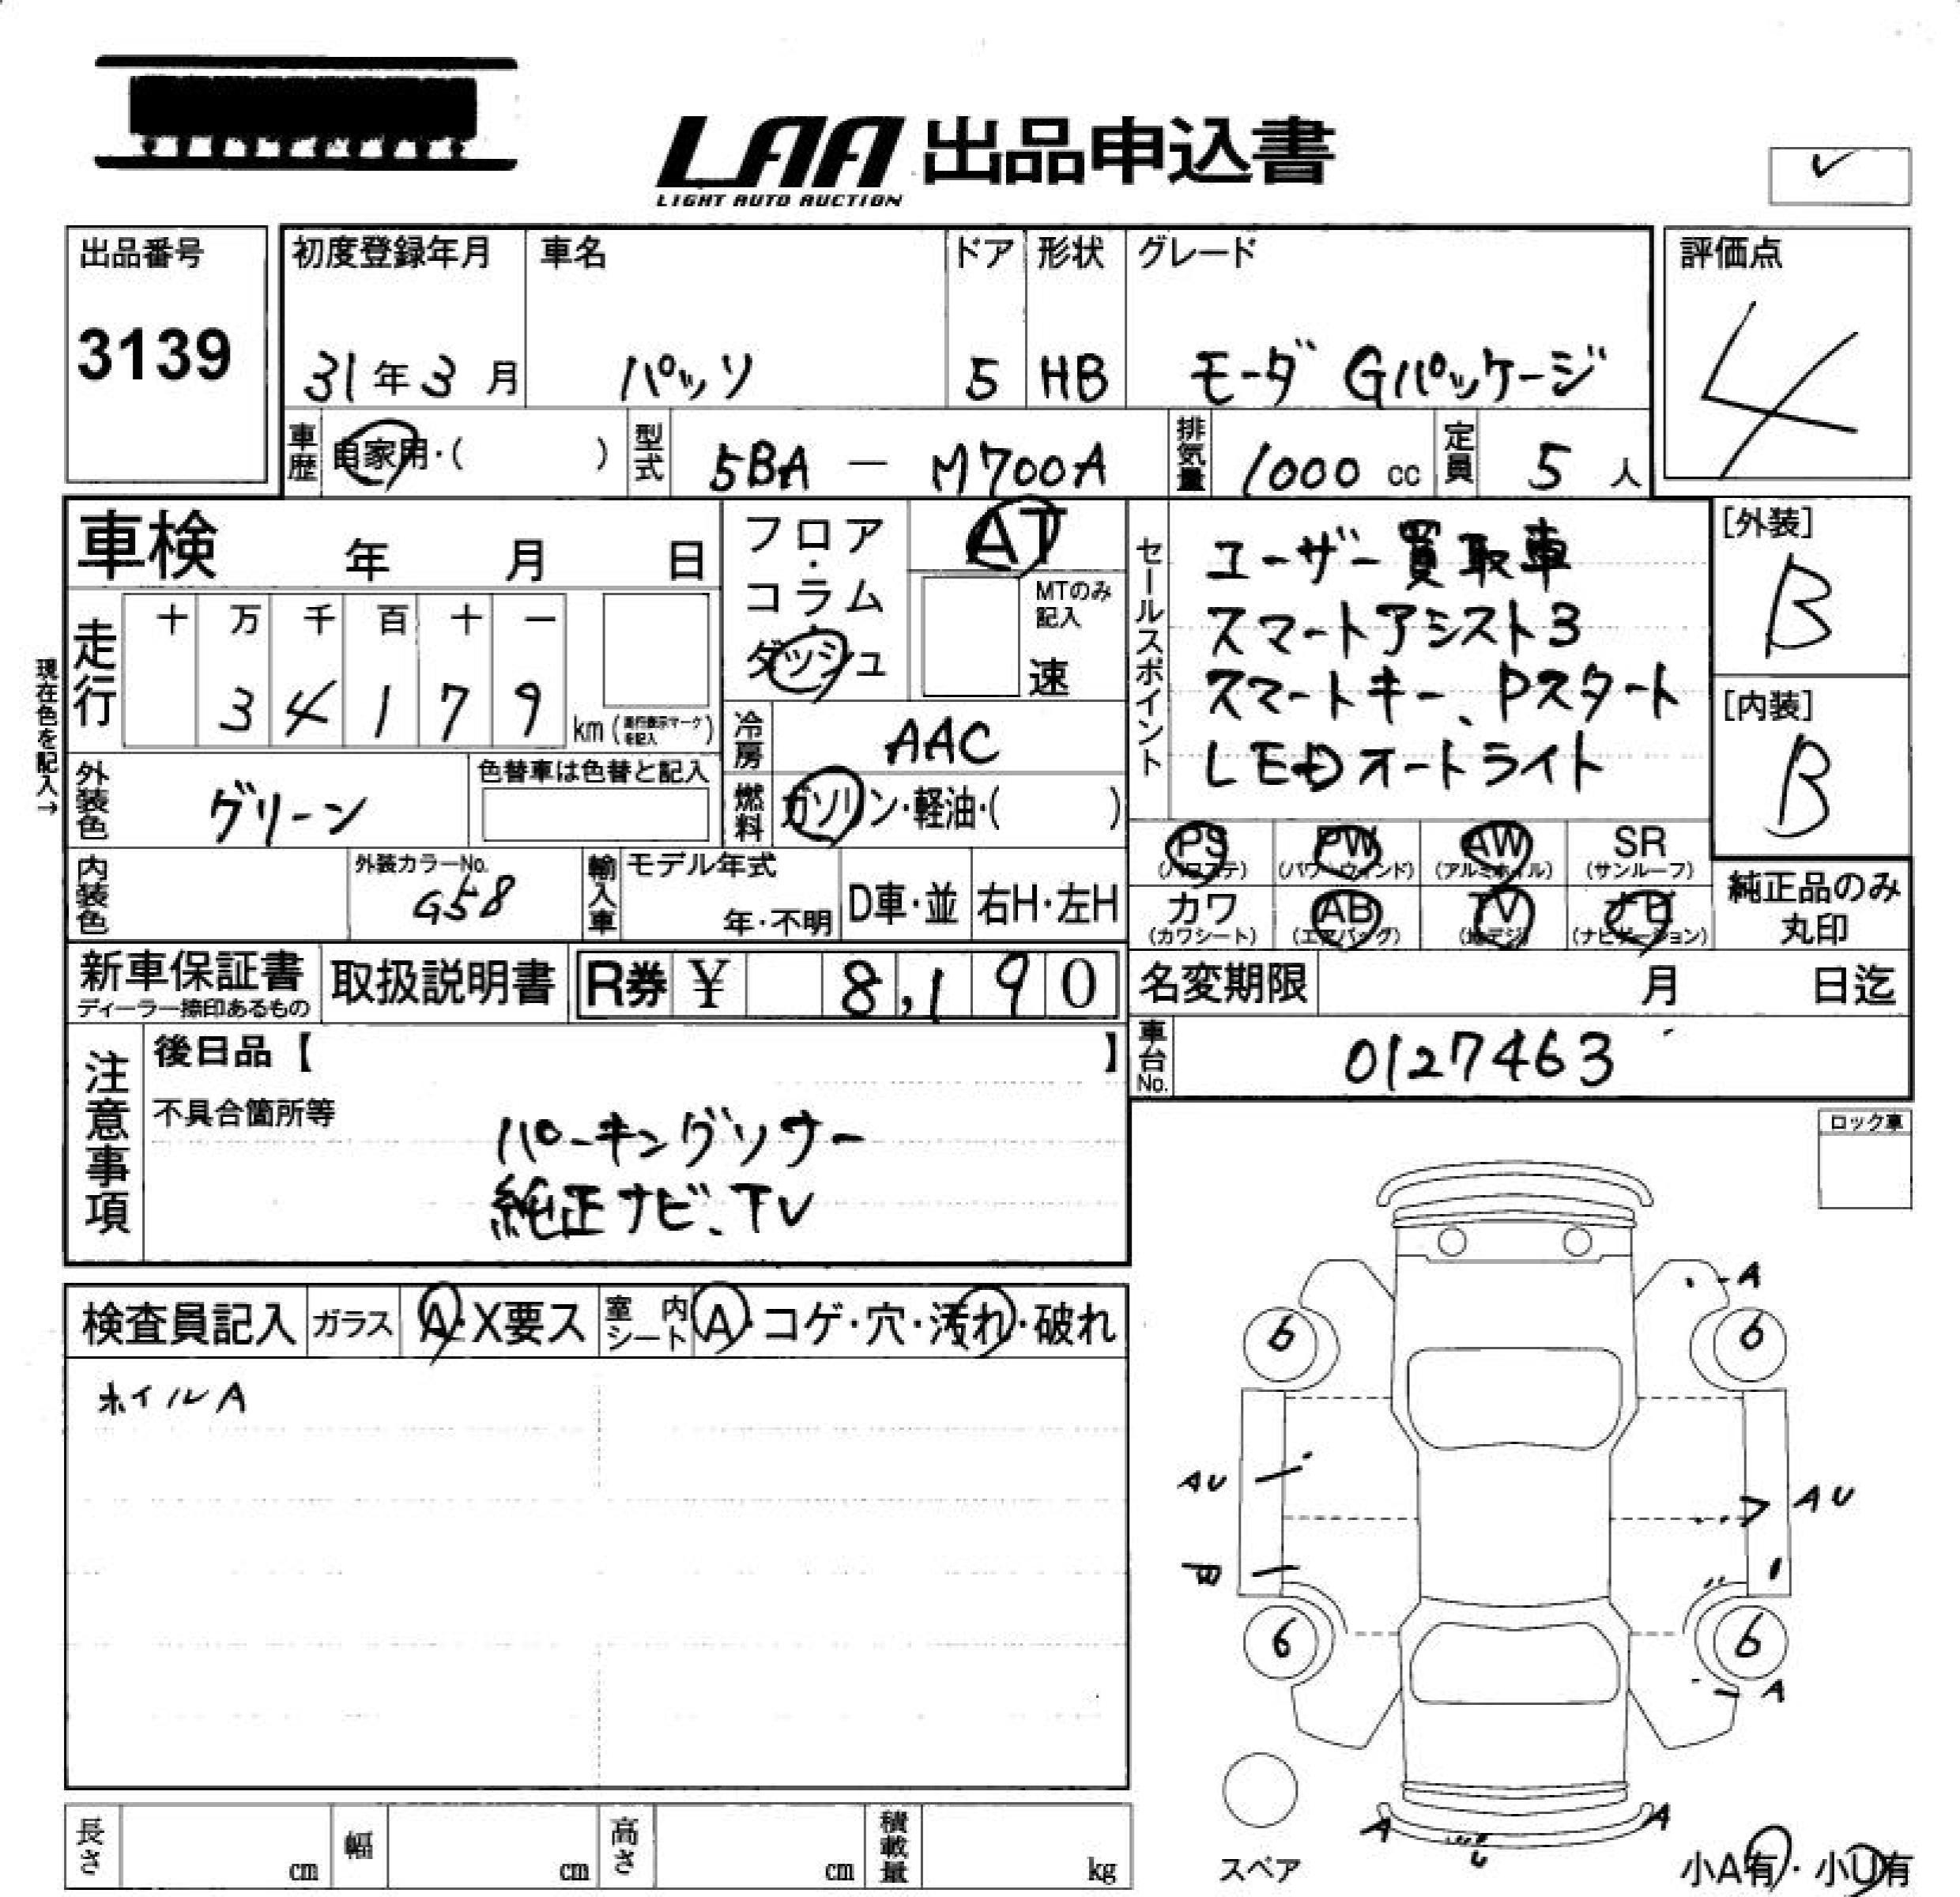 LAA 出品申込書
LIGHT AUTO AUCTION
出品番号
3139
初度登録年月
31年3月
車名
パッソ
ドア
5
形状
HB
グレード
モーダ Gパッケージ
評価点
4
車歴
自家用・( )
型式
5BA - M700A
排気量
1000 cc
定員
5 人
車検 年 月 日
フロア・コラム・ダッシュ
AT
MTのみ記入
速
セールスポイント
ユーザー買取車
スマートアシスト3
スマートキー、Pスタート
LEDオートライト
[外装]
B
[内装]
B
現在色を記入→
走行
十 万 千 百 十 一
3 4 1 7 9
km (走行表示マークを記入)
冷房
AAC
燃料
ガソリン・軽油・( )
外装色
グリーン
色替車は色替と記入
内装色
外装カラーNo.
G58
輸入車
モデル年式
年・不明
D車・並
右H・左H
PS (パワステ)
PW (パワーウィンド)
AW (アルミホイル)
SR (サンルーフ)
カワ (カワシート)
AB (エアバッグ)
TV (地デジ)
ナビ (ナビゲーション)
純正品のみ
丸印
新車保証書
ディーラー捺印あるもの
取扱説明書
R券 ¥ 8,190
名変期限 月 日迄
車台No.
0127463
注意事項
後日品【 】
不具合箇所等
パーキングソナー
純正ナビ、TV
ロック車
検査員記入
ガラス
A・X要ス
室内シート
A・コゲ・穴・汚れ・破れ
ホイルA
A
6 6
AU AU
B
6 6
A
A A
U
スペア
小A有・小U有
長さ cm
幅 cm
高さ cm
積載量 kg